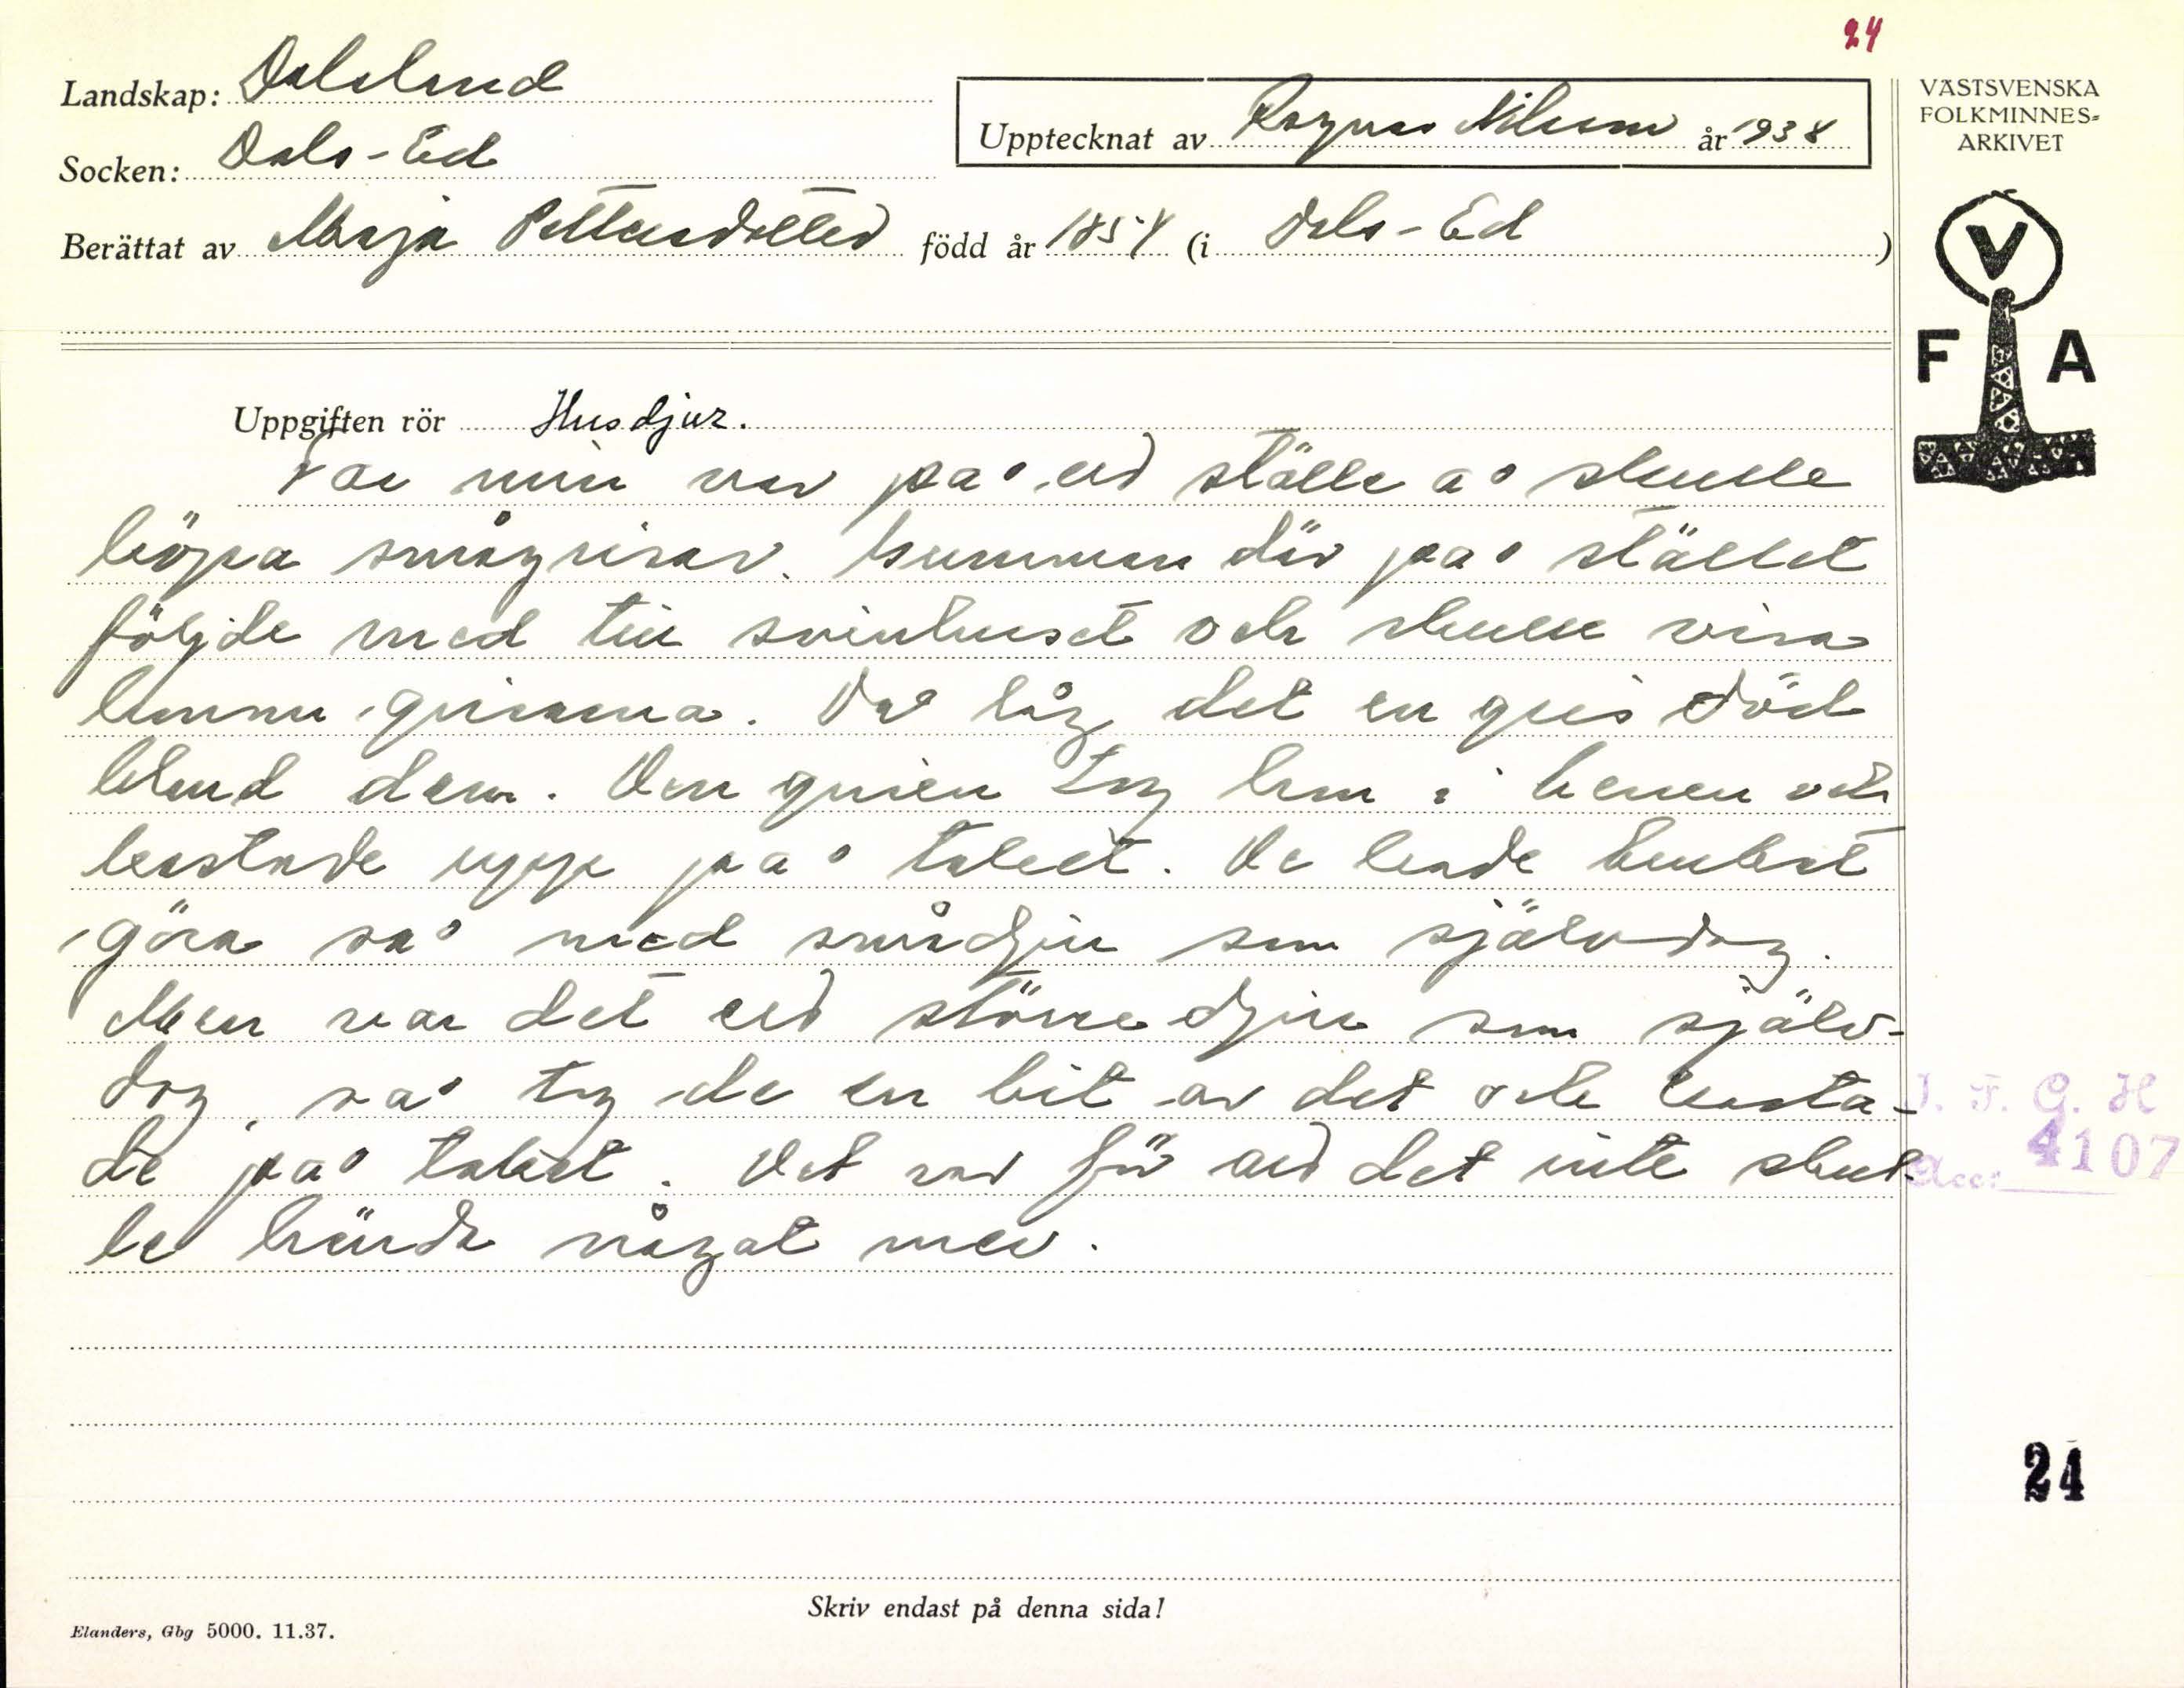 24
Landskap: Dalsland
Socken: Dals-Ed
Upptecknat av Ragnar Nilsson år 1938
Berättat av Maja Pettersdotter född år 1854 (i Dals-Ed)
VÄSTSVENSKA
FOLKMINNES=
ARKIVET
V
F A
Uppgiften rör Husdjur.
Far min var på ett ställe å skulle
köpa smågrisar. Gumman där på stället
följde med till svinhuset och skulle visa
honom grisarna. Då låg det en gris död
bland dem. Den grisen tog hon i benen och
kastade upp på taket. De hade brukat
göra så med smådjur som självdog.
Men var det ett större djur som själv-
dog, så tog de en bit av det och kasta-
de på taket. Det var för att det inte skul-
le hända något mer.
I. F. G. H
Acc: 4107
24
Skriv endast på denna sida!
Elanders, Gbg 5000. 11.37.